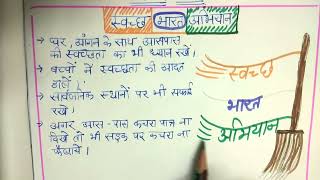 स्वच्छ भारत अभियान
→ घर, आंगन के साथ आसपास
की स्वच्छता का भी ध्यान रखें।
→ बच्चों में स्वच्छता की आदत
डालें।
→ सार्वजनिक स्थानों पर भी सफाई
रखें।
→ अगर आस-पास कचरा पात्र ना
दिखे तो भी सड़क पर कचरा ना
फैलायें।
स्वच्छ
भारत
अभियान